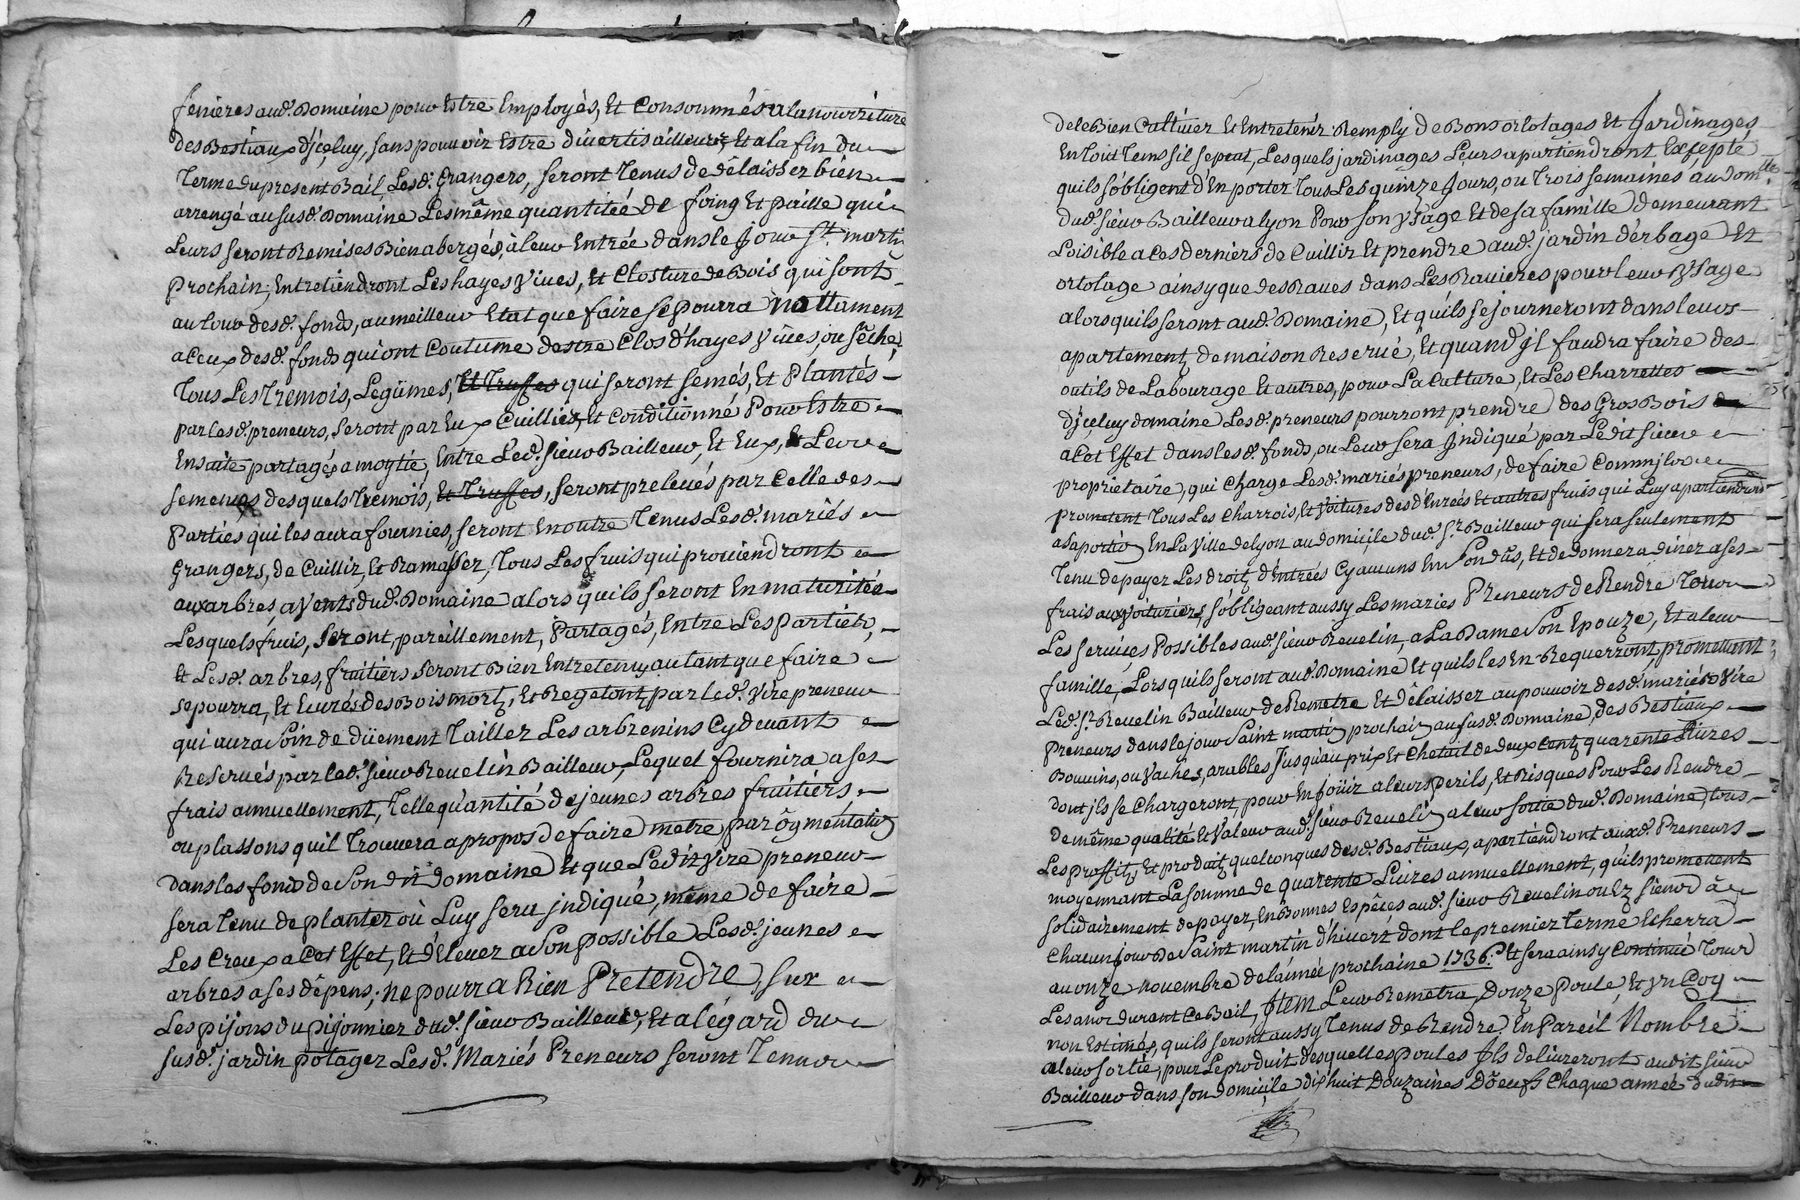 fenieres aud. Domaine pour Estre Employés, Et Consommés ala nourriture
des Bestiaux d'jceluy, sans pouvoir Estre divertis ailleurs, Et ala fin du
Terme du present Bail Lesd. Grangers, seront Tenus de délaisser bien
arrengé au susd. Domaine Les même quantitée de foing Et paille qui
Leurs seront Remises Bien abergés, à leur Entrée dans le Jour St. martin
Prochain; Entretiendront Les hayes vives, Et Closture de Bois qui sont
autour desd. fonds, au meilleur Etat que faire se pourra nottament
a Ceux desd. fonds qui ont Coutume destre Clos d'hayes vives, ou séche,
Tous Les Tremois, Legümes, Et Truffes qui seront semés, Et Plantés
par lesd. preneurs, seront par Eux Cuillies, Et Conditionné Pour Estre
Ensuite partagés a moytié, Entre Led. sieur Bailleur, Et Eux, Leur
semences desquels Trémois, Et Truffes, seront prelevés par Celle des
Parties qui les aura fournies, seront En outre Tenus Lesd. mariés
Grangers, de Cuillir, Et Ramasser, Tous Les fruis qui proviendront
aux arbres a vents dud. Domaine alors quils seront En maturitée
Lesquels fruis, seront, pareillement, Partagés, Entre Les parties,
Et Lesd. arbres, fruitiers seront Bien Entretenus autant que faire
se pourra, Et Curés des Bois mort, Et Regetont, par led. Vire preneur
qui aura soin de düement Tailler Les arbrenins Cydevant
Reservés par led. sieur Revelin Bailleur, Lequel fournira a ses
frais annuellement, Telle quantité de jeunes arbres fruitiers
ou plassons quil Trouvera a propos de faire metre, par ôgmentation
dans les fonds de Son dit domaine Et que Ledit Vire preneur
sera Tenu de planter où Luy sera jndiqué, même de faire
Les Creux a Cet Effet, Et d'Elever a Son possible Lesd. jeunes
arbres a ses dépens; ne pourra Rien Pretendre, sur
Les pijons du pijonnier dud. sieur Bailleur, Et a légard du
susd. jardin potager Lesd. Mariés Preneurs seront Tenus
de le Bien Cultiver Et Entretenir Remply de Bons ortolages Et Jardinages
En Tout Tems sil se peut, Lesquels jardinages Leurs apartiendront Excepte
quils s'obligent d'En porter Tous Les quinze Jours, ou Trois semaines au Domlle.
dud. sieur Bailleur a lyon Pour son Usage Et de sa famille demeurant
Loisible a Ces derniers de Cuillir Et prendre aud. jardin d'érbage Et
ortolage ainsy que des Raves dans Les Ravieres pour leur Usage
alors quils seront aud. Domaine, Et quils sejourneront dans leurs
apartement, de maison Reservé, Et quand Jl faudra faire des
outils de Labourage Et autres, pour La Culture, Et Les Charrettes
d'jceluy domaine Lesd. preneurs pourront prendre des Gros Bois
a Cet Effet dans lesd. fonds, ou Leur sera Jndiqué par Ledit sieur
propriétaire, qui Charge Lesd. mariés preneurs, de faire Comm'jls
prometent Tous Les Charrois, Et Voitures des denreés Et autres fruis qui Luy apartiendront
a sa portion En La Ville de lyon au domicile dud. Sr. Bailleur qui sera seulement
Tenu de payer Les droits d'Entrées Cy aucuns En Son dûs, Et de donner a diner a ses
frais aux voituriers, s'obligeant aussy Les mariés Preneurs de Rendre Tous
Les services Possibles aud. sieur Revelin, a La Dame Son Epouze, Et a leur
famille, Lors quils seront aud. Domaine Et quils les En Requerront, promettant
Led. Sr. Revelin Bailleur de Remetre Et Délaisser au pouvoir desd. mariés Vire
Preneurs dans le jour Saint martin prochain au susd. Domaine, des Bestiaux
Bouvins, ou Vaches, arables Jusqu'au prix Et Chetail de deux Cents quarente Livres
dont jls se Chargeront, pour En Joüir a leurs perils, Et Risques Pour Les Rendre
de même qualité Et Valeur aud. sieur Revelin a leur sortie dud. Domaine, tous
Les proffits, Et produits quelconques desd. Bestiaux, apartiendront auxd. Preneurs
moyennant La somme de quarente Livres annuellement, quils promettent
solidairement de payer, En Bonnes Espéces aud. sieur Revelin ou Ez siens à
Chacun jour De Saint martin d'hivert dont le premier Terme Echerra
au onze novembre de lannée prochaine 1736. Et sera ainsy Continué Tous
Les ans durant Ce Bail, Jtem Leur Remetra, Douze poule, Et Un Coq
non Estimés, quils seront aussy Tenus de Rendre En Pareil Nombre
a leur sortie, pour Le produit desquelles poules Jls delivreront audit sieur
Bailleur dans son domicile dix huit Douzaines D'oeufs Chaque année dudit